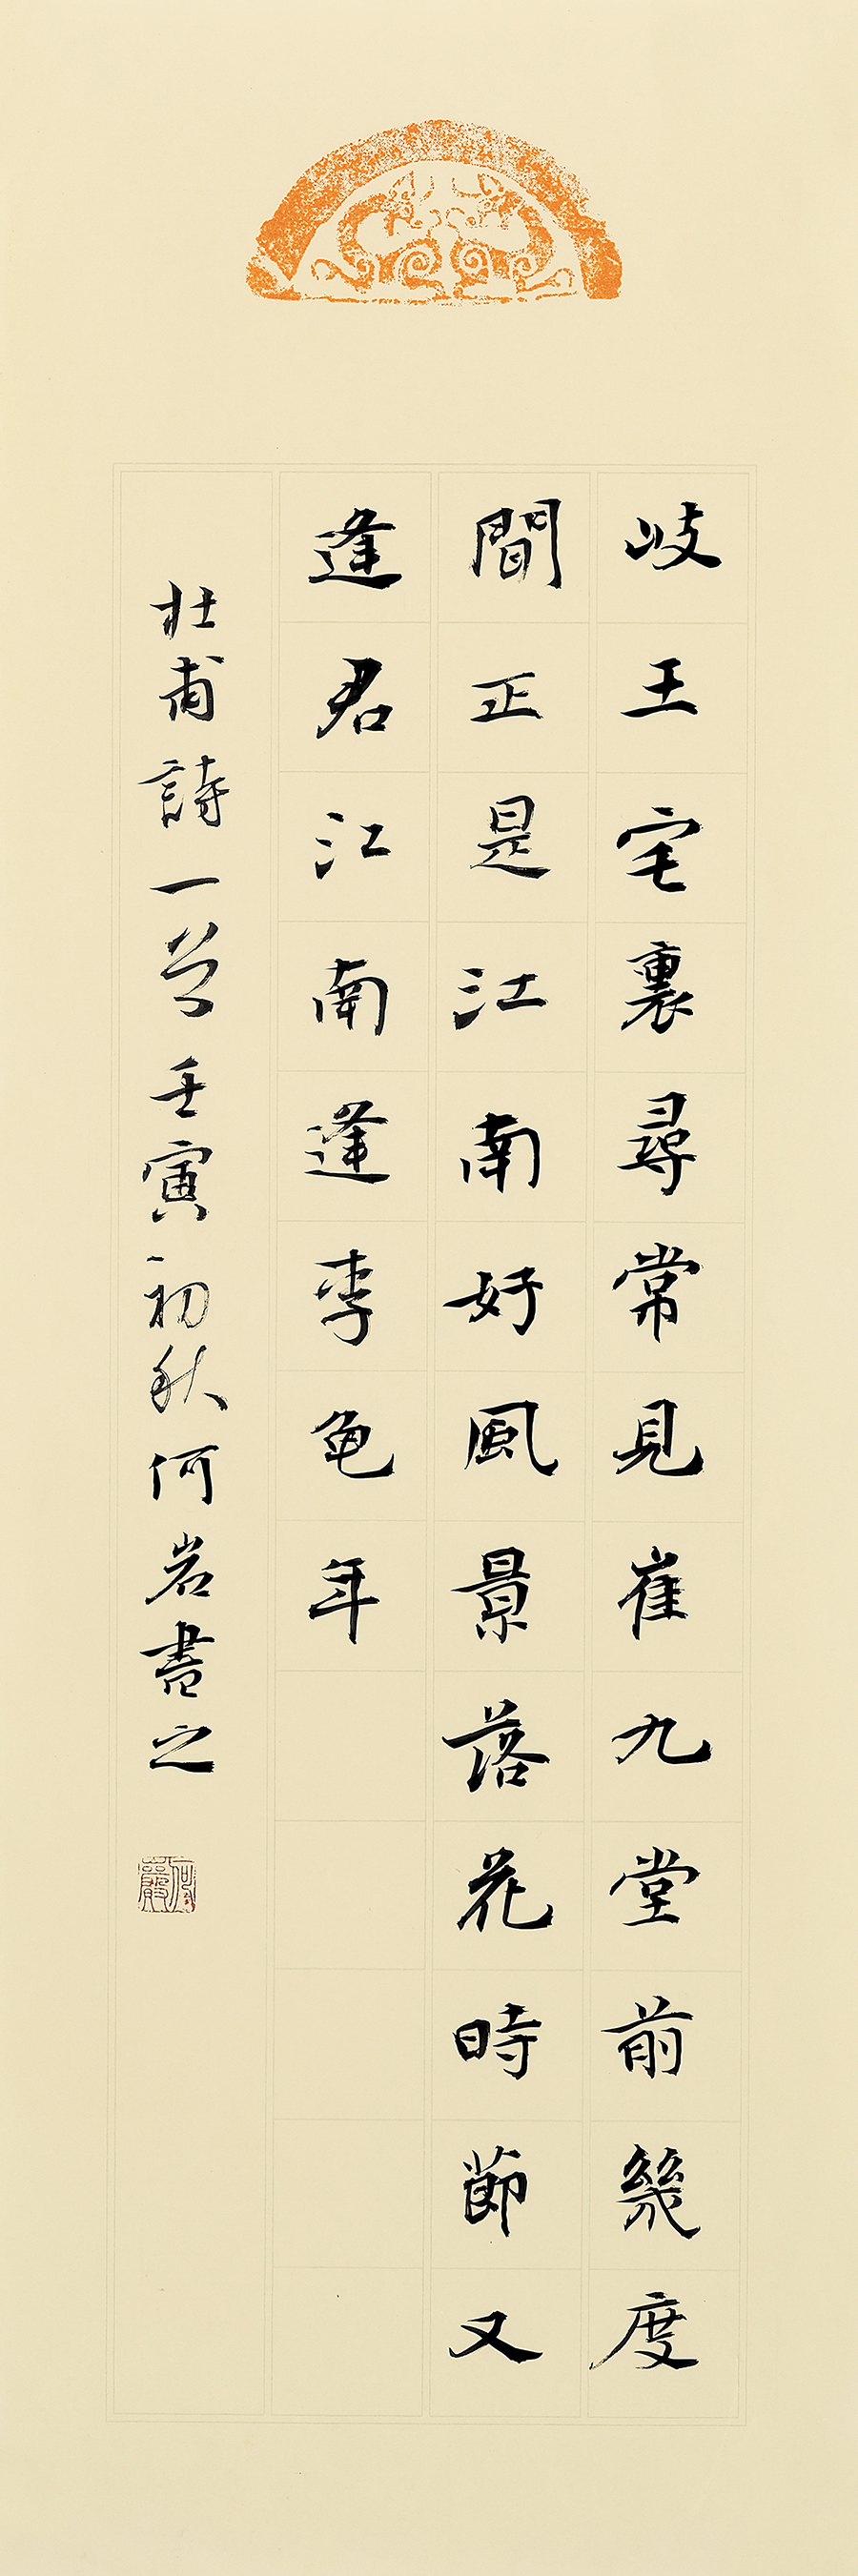 岐王宅裏尋常見崔九堂前幾度
聞正是江南好風景落花時節又
逢君江南逢李龟年
杜甫詩一首壬寅初秋何岩書之